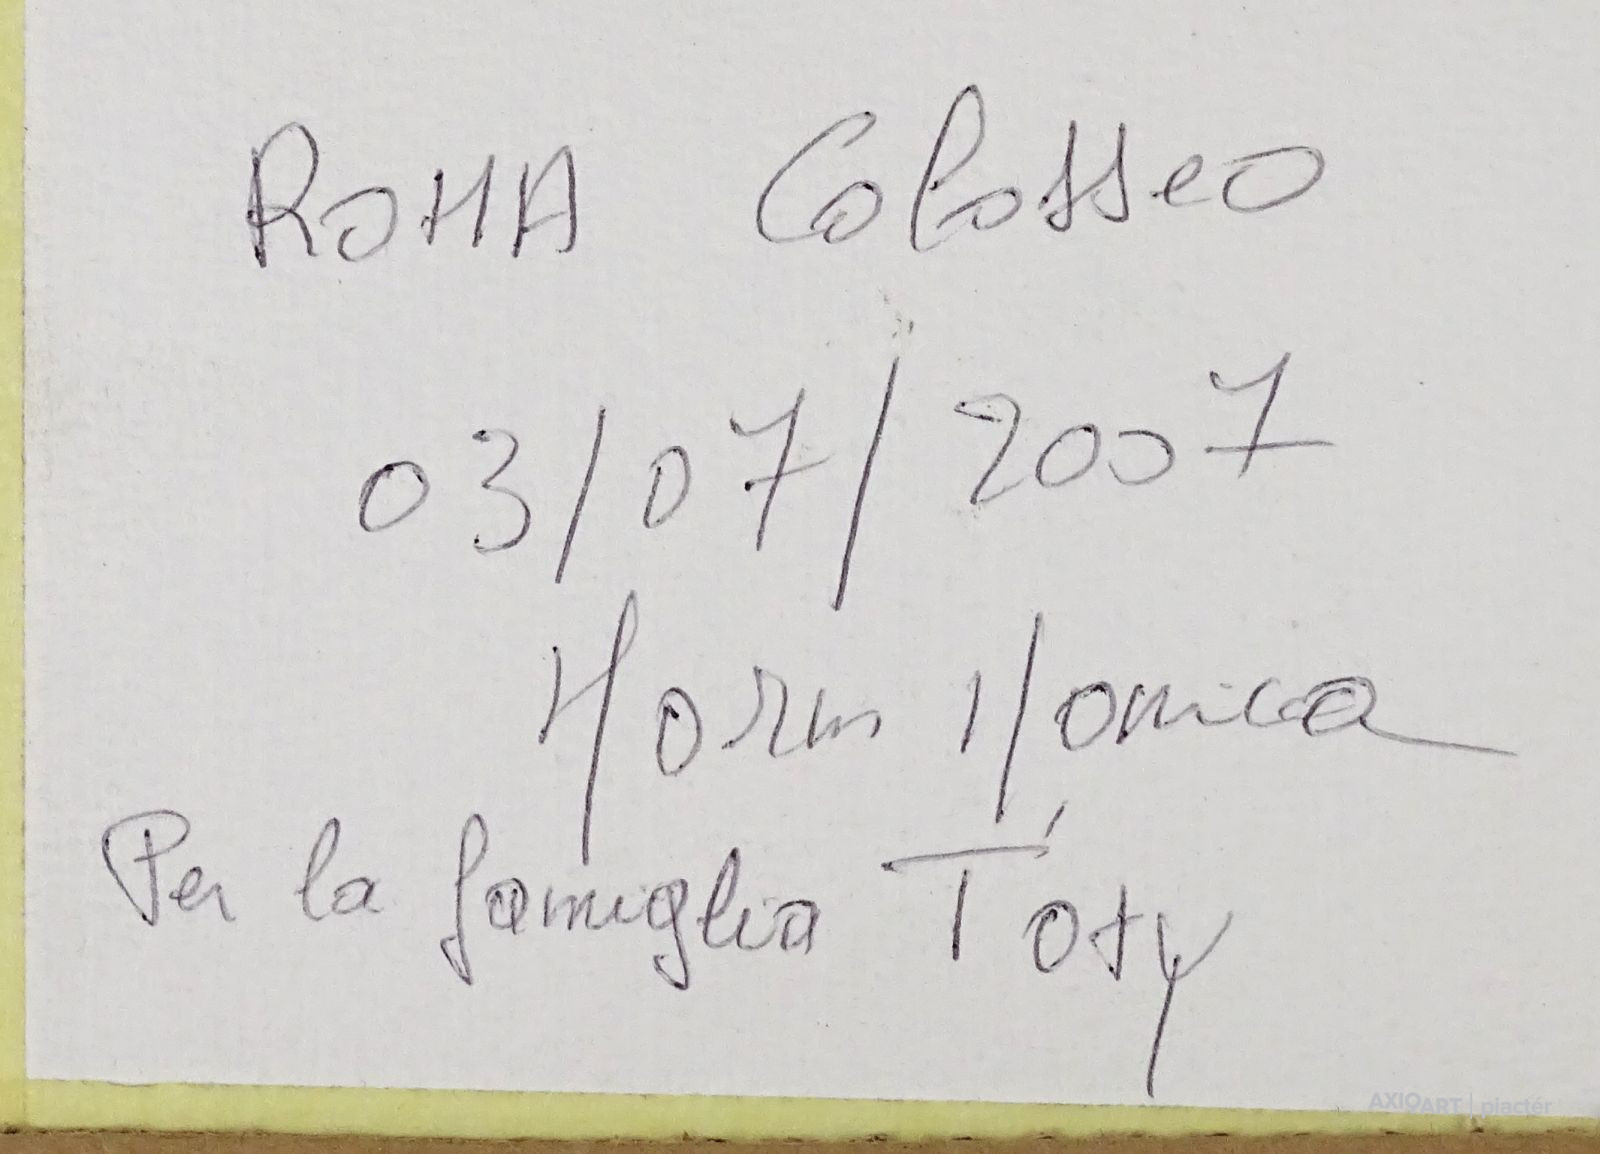 ROMA Colosseo
03/07/2007
Horn Monica
Per la famiglia Tóty
AXIOART | piactér